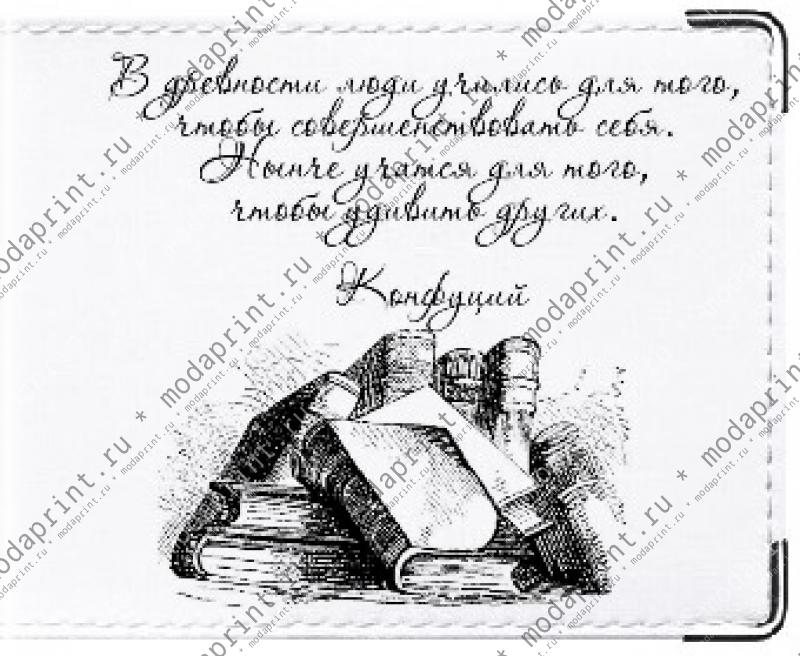 В древности люди учились для того,
чтобы совершенствовать себя.
Нынче учатся для того,
чтобы удивить других.
Конфуций
modaprint.ru * modaprint.ru * modaprint.ru